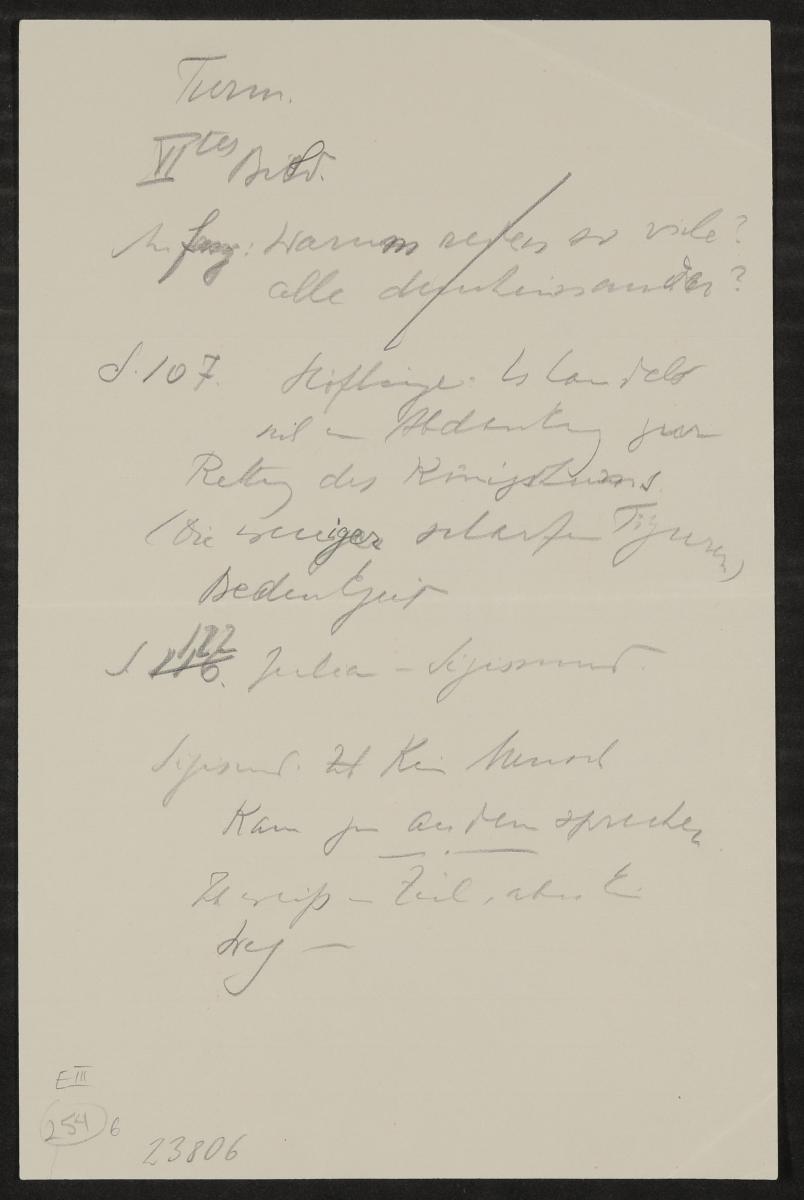 Turm.
VI tes Bild.
Anfang: Warum reden so viele?
alle durcheinander?
S. 107. Höflinge: Es handelt
sich um Abdankung zur
Rettung des Königthums
(Die weniger scharfen Figuren)
Bedenkzeit
S 122
116. Julian – Sigismund
Sigismund. Kein Mensch
Kann zum andern sprechen
Ich weiß – Ziel, aber
Weg —
E III
254 6
23806